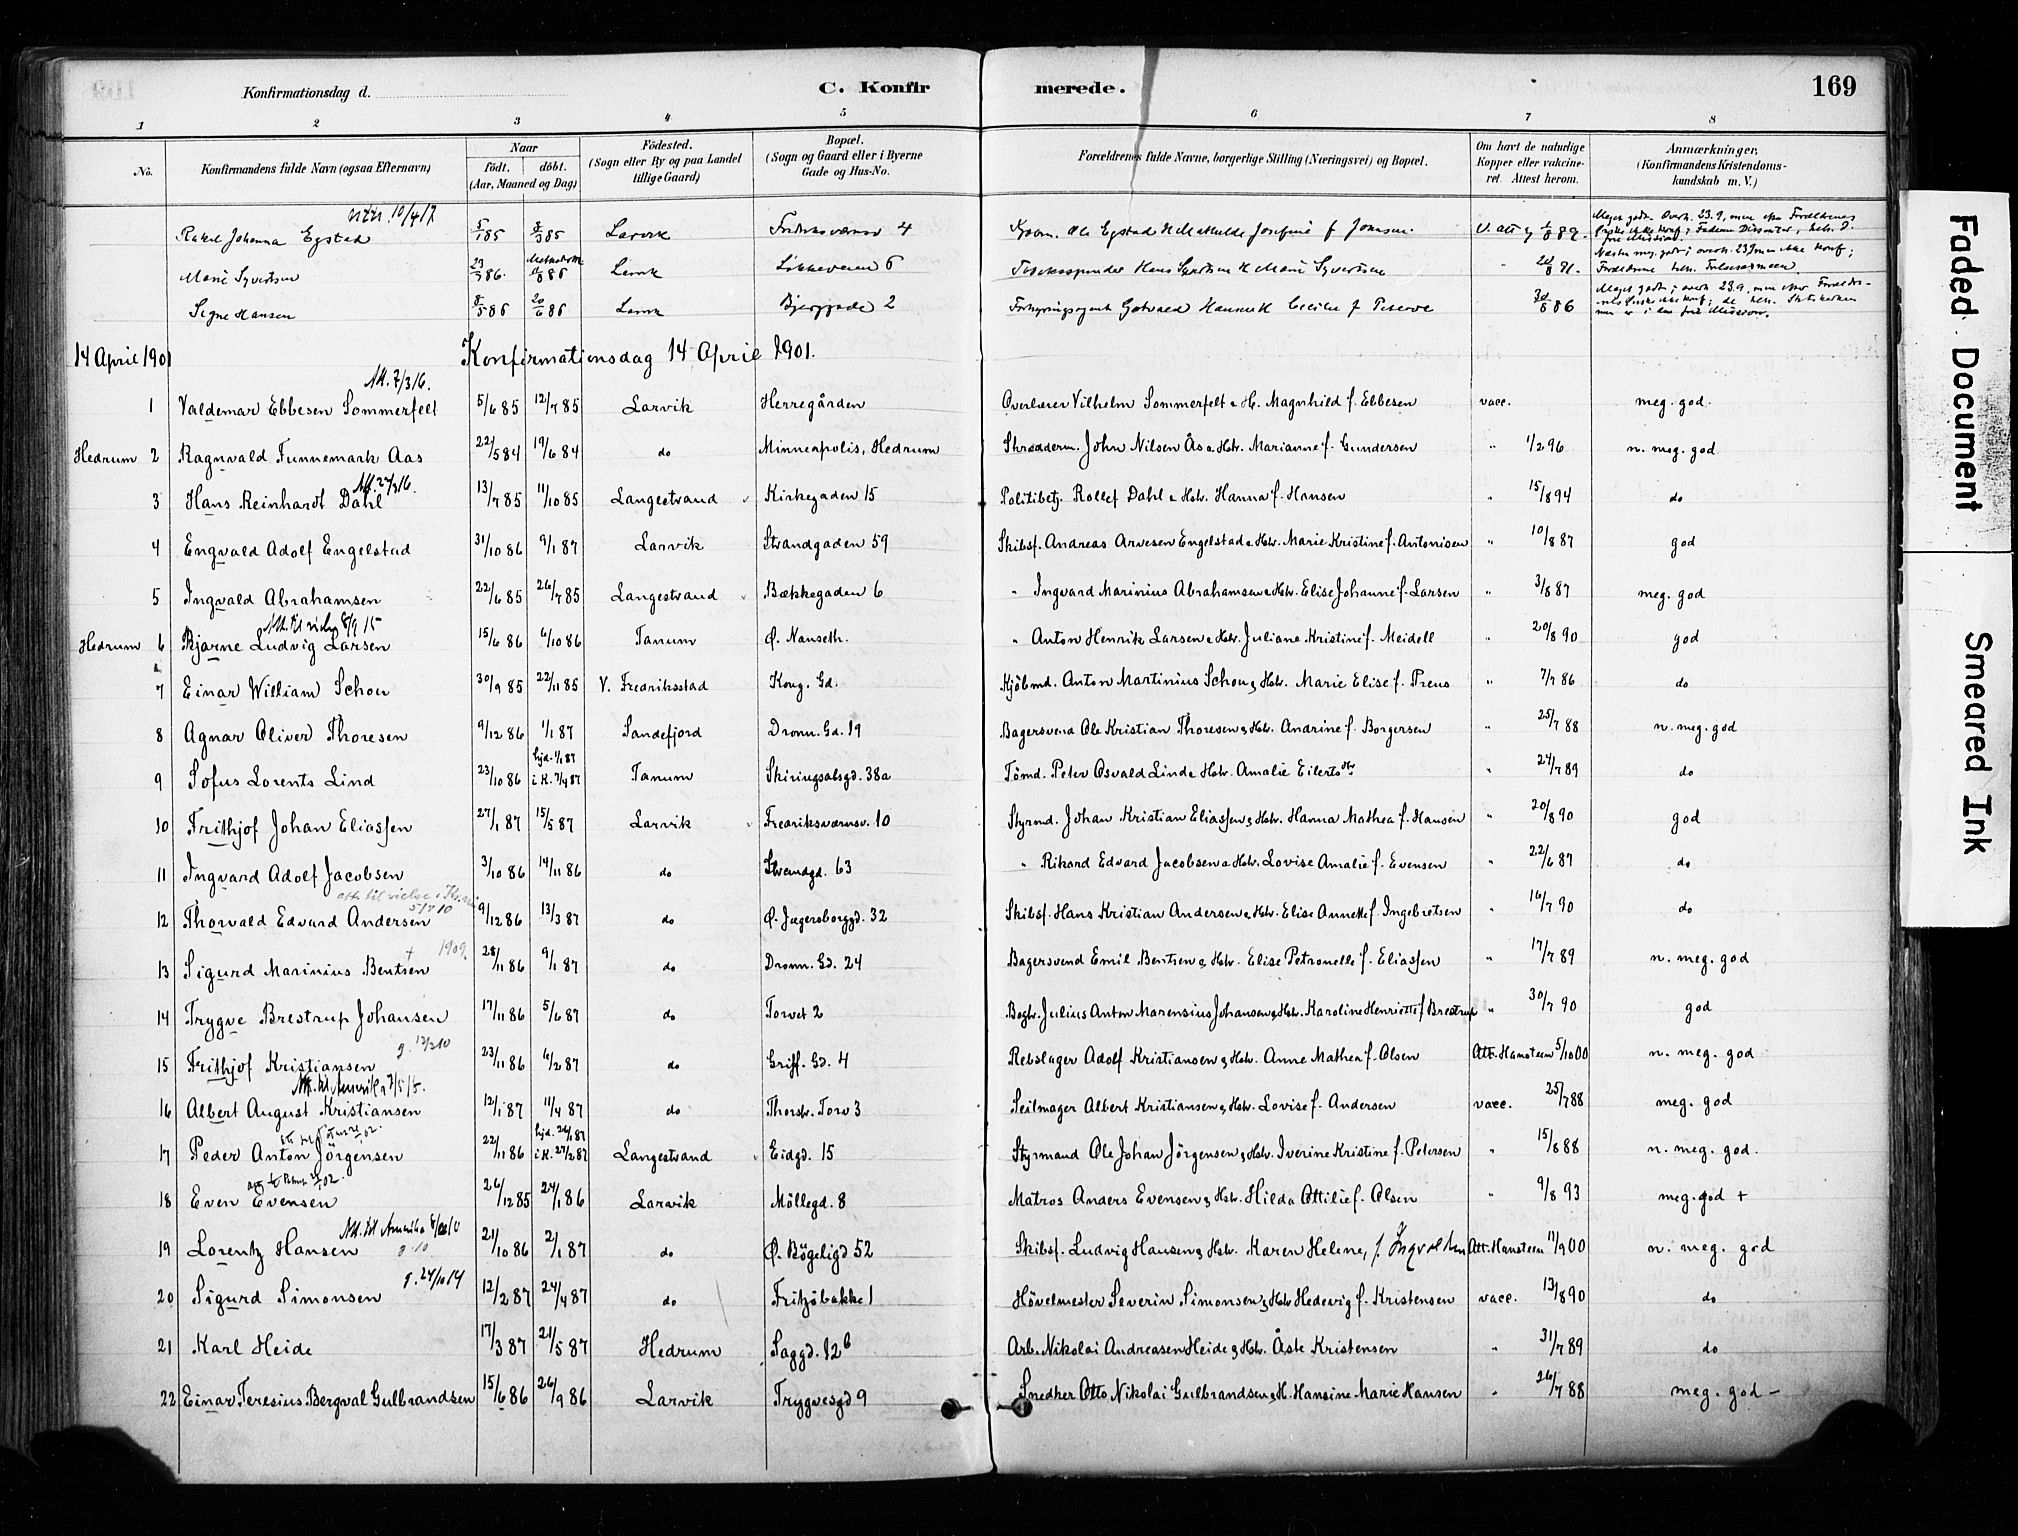 Konfirmationsdag d.
C. Konfirmerede.
169
1 2 3 4 5 6 7 8
No.
Konfirmandens fulde Navn (ogsaa Efternavn)
Naar
födt. döbt.
(Aar, Maaned og Dag)
Födested.
(Sogn eller By og paa Landet
tillige Gaard)
Bopæl.
(Sogn og Gaard eller i Byerne
Gade og Hus-No.
Forældrenes fulde Navne, borgerlige Stilling (Næringsvei) og Bopæl.
Om havt de naturlige
Kopper eller vakcine-
ret. Attest herom.
Anmærkninger,
(Konfirmandens Kristendoms-
kundskab m. V.)
10/4 17
Rakel Johanna Egstad 5/1 85 8/3 85 Larvik Fredriksværnsv 4 Ole Egstad H Mathilde Josefine f Jonassen
Marie Syvertsen 23/7 86 Larvik Løkkeveien 6 Hans Syvertsen H Marie Syvertsen
Signe Hansen 8/5 86 20/6 86 Larvik Bjerggade 2 Forsyringsagent Gotvald Hansen H Cecilie f
14 April 1901 Konfirmationsdag 14 April 1901.
Att. 7/3 16.
1 Valdemar Ebbesen Sommerfelt 5/6 85 12/7 85 Larvik Herregården Overlærer Vilhelm Sommerfelt & H. Magnhild f. Ebbesen vacc. meg. god.
Hedrum 2 Ragnvald Funnemark Aas 22/5 84 19/6 84 do Minneapolis, Hedrum Skrædderm. John Nilsen Ås & Hstr. Marianne f. Gundersen " 1/2 96 n. meg. god
3 Hans Reinhardt Dahl 13/7 85 11/10 85 Langestrand Kirkegaden 15 Politibetj. Rollef Dahl & Hstr. Hanna f. Hansen " 15/8 94 do
4 Engvald Adolf Engelstad 31/10 86 9/1 87 Larvik Strandgaden 59 Skibsf. Andreas Arvesen Engelstad & Hstr. Marie Kristine f. Antonisen " 10/8 87 god
5 Ingvald Abrahamsen 22/6 85 26/7 85 Langestrand Bækkegaden 6 " Ingvard Marinius Abrahamsen & Hstr. Elise Johanne f. Larsen " 3/8 87 meg. god
8/9 15
Hedrum 6 Bjarne Ludvig Larsen 15/6 86 6/10 86 Tanum Ø. Nanseth. " Anton Henrik Larsen & Hstr. Juliane Kristine f. Meidell " 20/8 90 god
7 Einar William Schou 30/9 85 22/11 85 V. Fredriksstad Kong. Gd. Kjöbmd. Anton Martinius Schou & Hstr. Marie Elise f. Preus " 7/7 86 do
8 Agnar Oliver Thoresen 9/12 86 1/1 87 Sandefjord Dronn. Gd. 19 Bagersvend Ole Kristian Thoresen & Hstr. Andrine f. Borgersen " 25/7 88 n. meg. god
9 Sofus Lorents Lind 23/10 86 hjd. 1/1 87 i K. 7/4 87 Tanum Skiringsalsgd. 38a Tömd. Peter Osvald Lind & Hstr. Amalie Eilertsdtr " 24/7 89 do
10 Frithjof Johan Eliassen 27/1 87 15/5 87 Larvik Fredriksværnsv. 10 Styrmd. Johan Kristian Eliassen & Hstr. Hanna Mathea f. Hansen " 20/8 90 god
11 Ingvard Adolf Jacobsen 3/10 86 14/11 86 do Strandgd. 63 " Rikard Edvard Jacobsen & Hstr. Lovise Amalie f. Evensen " 22/6 87 do
att. til vielse 5/7 10
12 Thorvald Edvard Andersen 9/12 86 13/3 87 do Ø. Jegersborggd. 32 Skibsf. Hans Kristian Andersen & Hstr. Elise Annette f. Ingebretsen " 16/7 90 do
+ 1909.
13 Sigurd Marinius Bentsen 28/11 86 9/1 87 do Dronn. Gd. 24 Bagersvend Emil Bentsen & Hstr. Elise Petronelle f. Eliassen " 17/7 89 n. meg. god
14 Trygve Brestrup Johansen 17/11 86 5/6 87 do Torvet 2 Bogtr. Julius Anton Marensius Johansen & Hstr. Karoline Henriette f. Brestrup " 30/7 90 god
15 Frithjof Kristiansen 23/11 86 6/2 87 do Griff. Gd. 4 Rebslager Adolf Kristiansen & Hstr. Anne Mathea f. Olsen Att. Hansteen 5/10 00 n. meg. god
Att. til Amerika 7/5 15.
16 Albert August Kristiansen 12/1 87 11/4 87 do Thorstr. Torv 3 Seilmager Albert Kristiansen & Hstr. Lovise f. Andersen vacc. 25/7 88 meg. god
17 Peder Anton Jörgensen 22/11 86 hjd. 26/1 87 i K. 27/2 87 Langestrand Eidgd. 15 Styrmand Ole Johan Jörgensen & Hstr. Iverine Kristine f. Petersen " 15/8 88 n. meg. god.
18 Even Evensen 26/12 85 24/1 86 Larvik Möllegd. 8 Matros Anders Evensen & Hstr. Hilda Ottilie f. Olsen " 9/8 93 meg. god +
Att. til Amerika
19 Lorentz Hansen 21/10 86 2/1 87 do Ø. Bögeligd 52 Skibsf. Ludvig Hansen & Hstr. Karen Helene, f. Ingvoldsen Att. Hansteen 11/9 00 n. meg. god
g. 24/10 14
20 Sigurd Simonsen 12/2 87 24/4 87 do Fritzöbakke 1 Hövelmester Severin Simonsen & Hstr. Hedevig f. Kristensen vacc. 13/8 90 do
21 Karl Heide 17/3 87 21/5 87 Hedrum Saggd. 12b Arb. Nikolai Andreasen Heide & Hstr. Åste Kristensen " 31/7 89 do
22 Einar Teresius Bergval Gulbrandsen 15/6 86 26/9 86 Larvik Trygvesgd 9 Snedker Otto Nikolai Gulbrandsen & H. Hansine Marie Hansen " 26/7 88 meg. god -
Faded Document
Smeared Ink